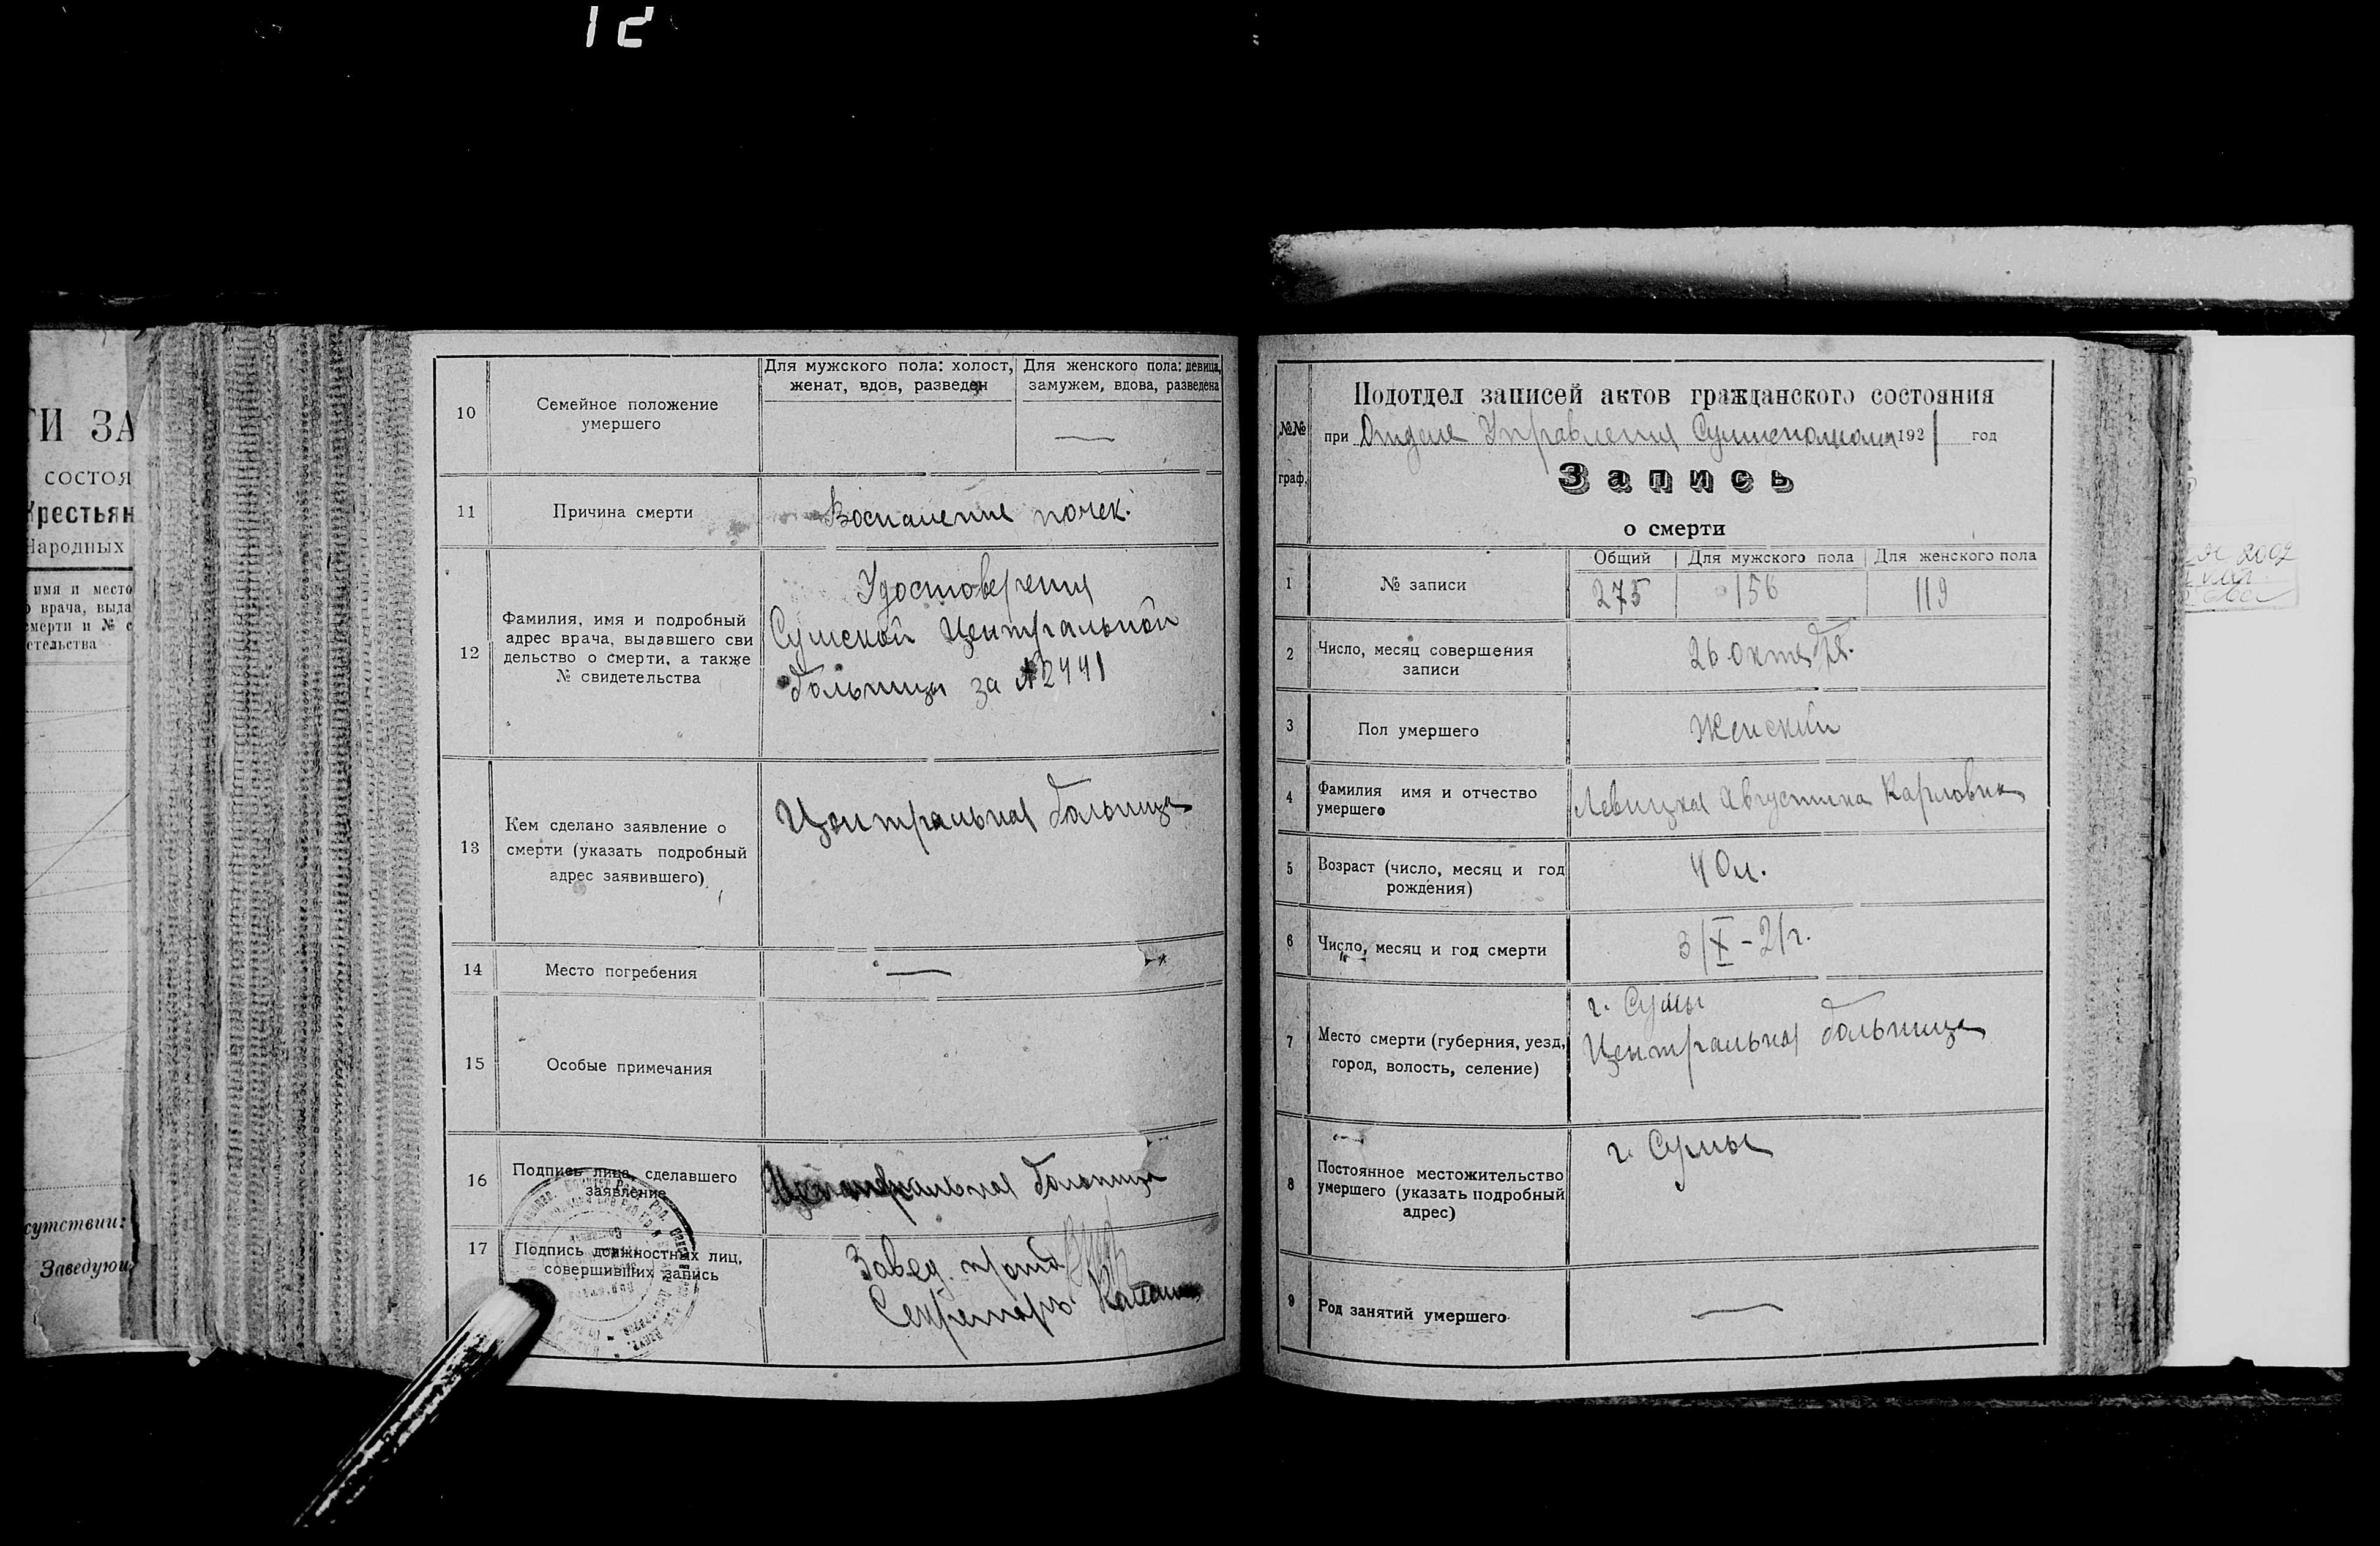 12
ТИ ЗА
состоя
Крестьян
Народных
имя и место
врача, выда
смерти и № с
етельства
сутствии:
Заведующ
10
Семейное положение
умершего
Для мужского пола: холост,
женат, вдов, разведен
Для женского пола: девица,
замужем, вдова, разведена
—
11
Причина смерти
Воспаление почек.
12
Фамилия, имя и подробный
адрес врача, выдавшего сви
дельство о смерти, а также
№ свидетельства
Удостоверения
Сумской Центральной
больницы за №2441
13
Кем сделано заявление о
смерти (указать подробный
адрес заявившего)
Центральная больница
14
Место погребения
—
15
Особые примечания
16
Подпись лица, сделавшего
заявление
Центральная больница
17
Подпись должностных лиц,
совершивших запись
Завед.
Секретарь
№№
граф.
Подотдел записей актов гражданского состояния
при Отделе Управления Сумисполкома 1921 год
Запись
о смерти
1
№ записи
Общий
Для мужского пола
Для женского пола
275
156
119
2
Число, месяц совершения
записи
26 октября.
3
Пол умершего
Женский
4
Фамилия имя и отчество
умершего
Левицкая Августина Карловна
5
Возраст (число, месяц и год
рождения)
40 л.
6
Число, месяц и год смерти
3/X-21г.
7
Место смерти (губерния, уезд,
город, волость, селение)
г. Сумы
Центральная больница
8
Постоянное местожительство
умершего (указать подробный
адрес)
г. Сумы
9
Род занятий умершего
—
2002